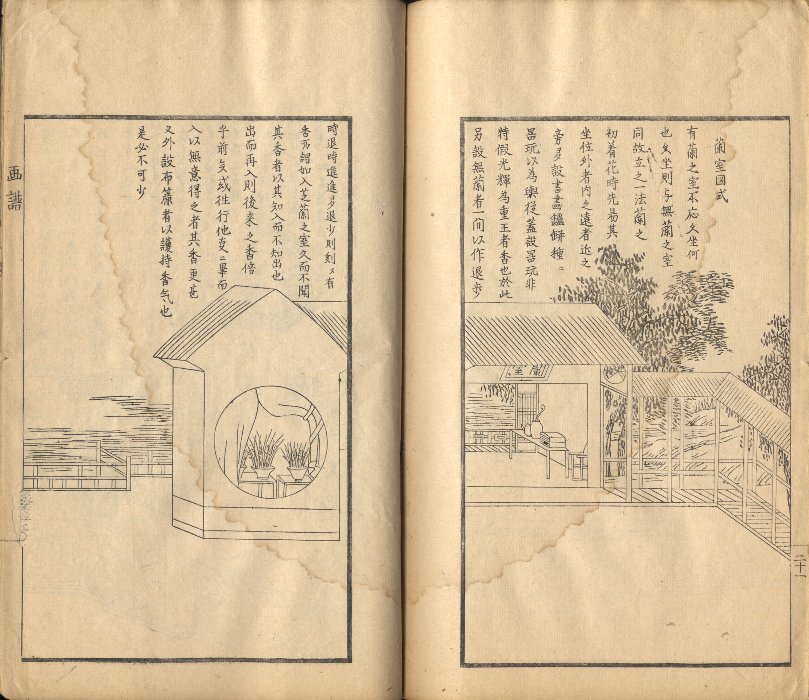 蘭室図式
有蘭之室不忘久坐何
也久坐則与無蘭之室
同故立之一法蘭之
初着花時先易其
坐位外者内之遠者近之
旁多設書畫鑪缾種〻
器玩以為樂從蓋設器玩非
特假光輝為重王者香也於此
另設無蘭者一間以作退步
時退時進進多退少則刻〻有
香所謂如入芝蘭之室久而不聞
其香者以其知入而不知出也
出而再入則後来之香倍
乎前矣或往行他変〻畢而
入以無意得之者其香更甚
又外設布簾者以護持香气也
是必不可少
蘭室
画譜
二十一